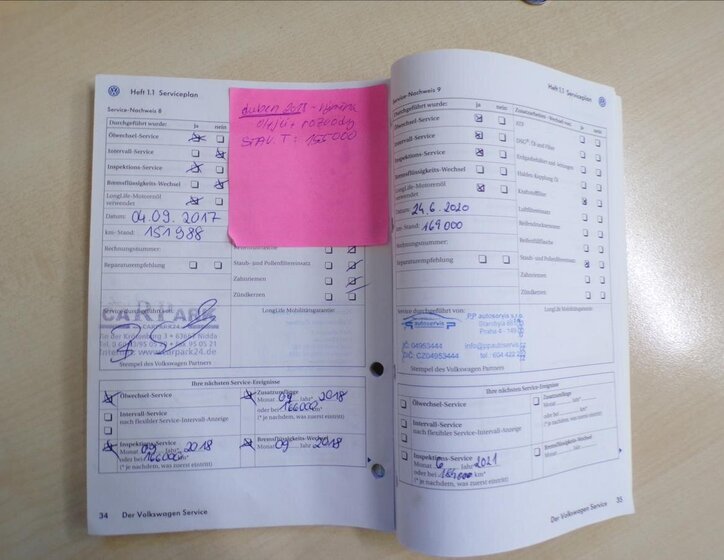 Heft 1.1 Serviceplan
Service-Nachweis 8
Durchgeführt wurde: ja nein
Ölwechsel-Service
Intervall-Service
Inspektions-Service
Bremsflüssigkeits-Wechsel
LongLife-Motorenöl
verwendet
Datum: 04.09.2017
km-Stand: 151988
Rechnungsnummer:
Reparaturempfehlung
duben 2018 - výměna
oleje + rozvody
STAV. T: 155000
Staub- und Pollenfiltereinsatz
Zahnriemen
Zündkerzen
Service durchgeführt von:
LongLife Mobilitätsgarantie:
CARPARK
CARPARK24.DE
Stempel des Volkswagen Partners
Ihre nächsten Service-Ereignisse
Ölwechsel-Service
Intervall-Service
nach flexibler Service-Intervall-Anzeige
Inspektions-Service
Monat 09 Jahr 2018
oder bei 166000 km*
(* je nachdem, was zuerst eintritt)
Zusatzumfänge
Monat 09 Jahr* 2018
oder bei 166000 km*
(* je nachdem, was zuerst eintritt)
Bremsflüssigkeits-Wechsel
Monat 09 Jahr 2018
34 Der Volkswagen Service
Heft 1.1 Serviceplan
Service-Nachweis 9
Durchgeführt wurde: ja nein
Ölwechsel-Service
Intervall-Service
Inspektions-Service
Bremsflüssigkeits-Wechsel
LongLife-Motorenöl
verwendet
Datum: 24.6.2020
km-Stand: 169000
Rechnungsnummer:
Reparaturempfehlung
ja nein
ATF
DSG®: Öl und Filter
Haldex Kupplung Öl
Kraftstofffilter
Luftfiltereinsatz
Reifenfülflasche
Staub- und Pollenfiltereinsatz
Zahnriemen
Zündkerzen
Service durchgeführt von:
LongLife Mobilitätsgarantie:
autoservis
PP autoservis s.r.o.
Praha 4 - 149
IČ: 04953444
DIČ: CZ04953444
info@ppautoservis.cz
tel.: 604 422
Stempel des Volkswagen Partners
Ihre nächsten Service-Ereignisse
Ölwechsel-Service
Intervall-Service
nach flexibler Service-Intervall-Anzeige
Inspektions-Service
Monat 6 Jahr 2021
oder bei 184000 km*
(* je nachdem, was zuerst eintritt)
Zusatzumfänge
Monat Jahr*
oder bei km*
(* je nachdem, was zuerst eintritt)
Bremsflüssigkeits-Wechsel
Monat Jahr
Der Volkswagen Service 35